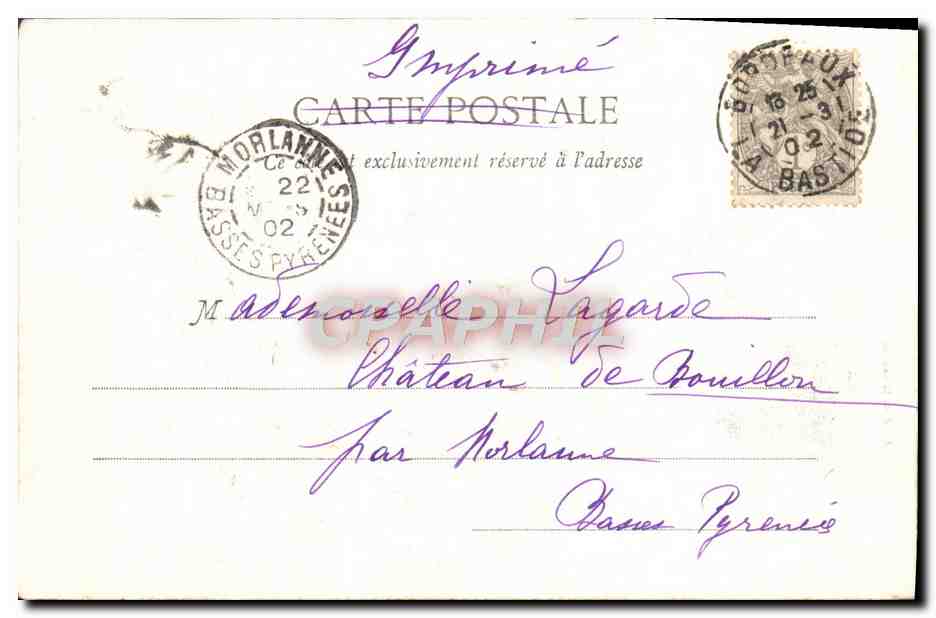 Imprimé
CARTE POSTALE
Ce côté est exclusivement réservé à l'adresse
BORDEAUX
18 25
21 -3
02
LA BASTIDE
MORLANNE
22
MARS
02
BASSES PYRENEES
Mademoiselle Lagarde
CPAPHIL
Château de Bouillon
par Morlanne
Basses Pyrenées